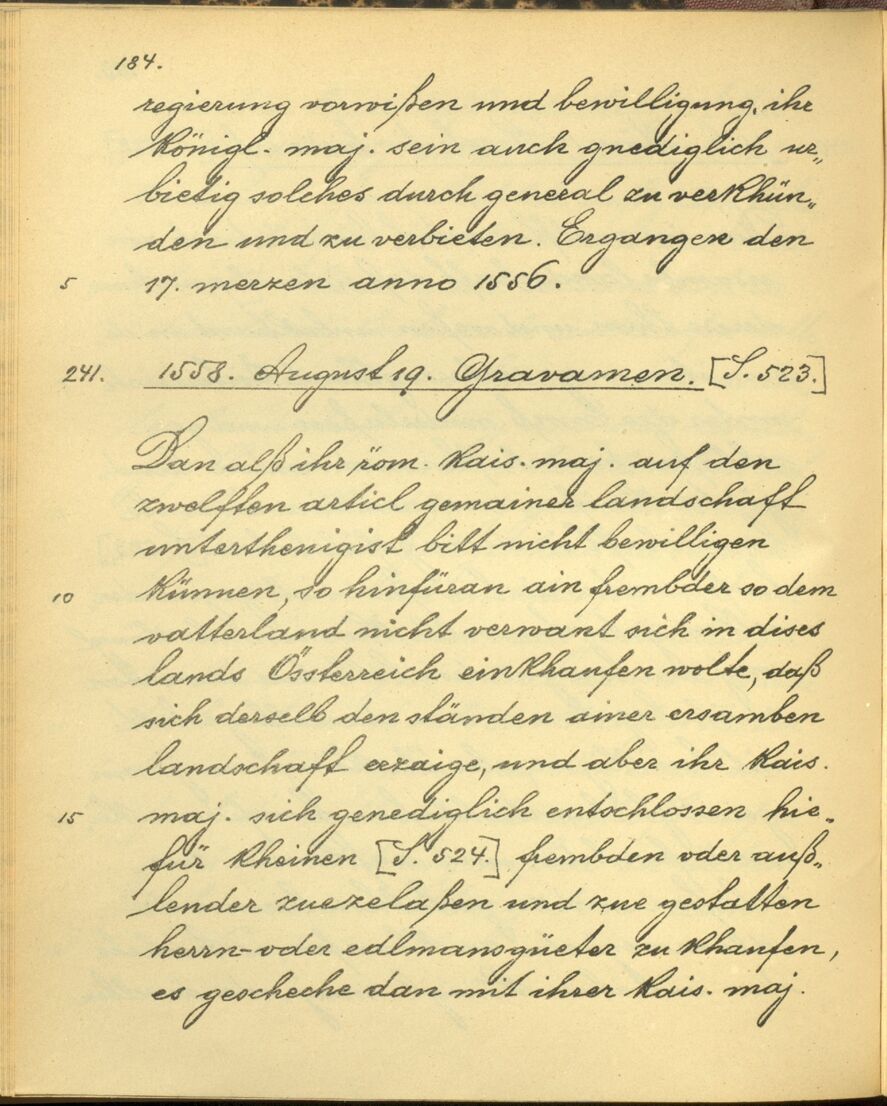 184.
regierung vorwißen und bewilligung, ihr
königl. maj. sein auch gnediglich ur„
bietig solches durch general zu verkhün„
den und zu verbieten. Ergangen den
5 17. merzen anno 1556.
241. 1558. August 19. Gravamen. [S. 523.]
Dan alß ihr röm. kais. maj. auf den
zwelften articl gemainer landschaft
unterthenigist bitt nicht bewilligen
10 künnen, so hinfüran ain frembder so dem
vatterland nicht verwant sich in dises
lands Össterreich einkhaufen wolte, daß
sich derselb den ständen ainer ersamben
landschaft erzaige, und aber ihr kais.
15 maj. sich genediglich entschlossen hie„
für kheinen [S. 524.] frembden oder auß„
lender zuezelaßen und zue gestatten
herrn- oder edlmansgüeter zu khaufen,
es gescheche dan mit ihrer kais. maj.